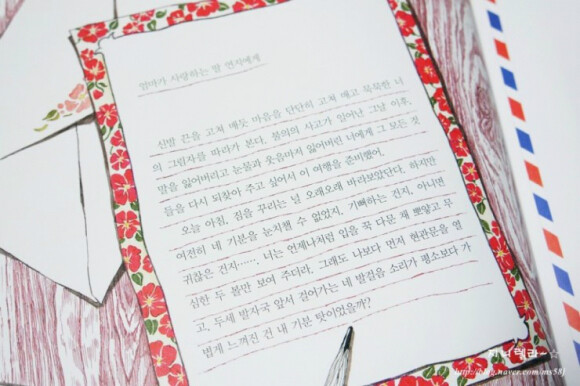 엄마가 사랑하는 딸 연지에게
신발 끈을 고쳐 매듯 마음을 단단히 고쳐 매고 묵묵한 너
의 그림자를 따라가 본다. 불의의 사고가 있어난 그날 이후,
말을 잃어버리고 눈물과 웃음마저 잃어버린 너에게 그 모든 것
들을 다시 되찾아 주고 싶어서 이 여행을 준비했어.
오늘 아침, 짐을 꾸리는 널 오래오래 바라보았단다. 하지만
여전히 네 기분을 눈치챌 수 없었지. 기뻐하는 건지, 아니면
귀찮은 건지……. 너는 언제나처럼 입을 꾹 다문 채 뽀얗고 무
심한 두 볼만 보여 주더라. 그래도 나보다 먼저 현관문을 열
고, 두세 발자국 앞서 걸어가는 네 발걸음 소리가 평소보다 가
볍게 느껴진 건 내 기분 탓이었을까?
http://blog.naver.com/ms58j